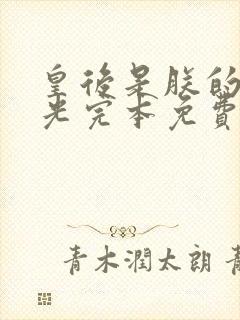 皇後是朕的
光完本免費
青木潤太朗